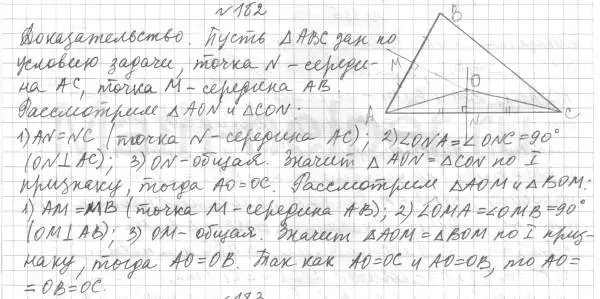 №182
Доказательство. Пусть △ABC дан по
условию задачи, точка N - середи-
на AC, точка M - середина AB.
Рассмотрим △AON и △CON:
1) AN=NC (точка N - середина AC); 2) ∠ONA=∠ONC=90°
(ON⊥AC); 3) ON - общая. Значит △AON=△CON по I
признаку, тогда AO=OC. Рассмотрим △AOM и △BOM:
1) AM=MB (точка M - середина AB); 2) ∠OMA=∠OMB=90°
(OM⊥AB); 3) OM - общая. Значит △AOM=△BOM по I приз-
наку, тогда AO=OB. Так как AO=OC и AO=OB, то AO=
=OB=OC.
№183
B
M
O
A
N
C